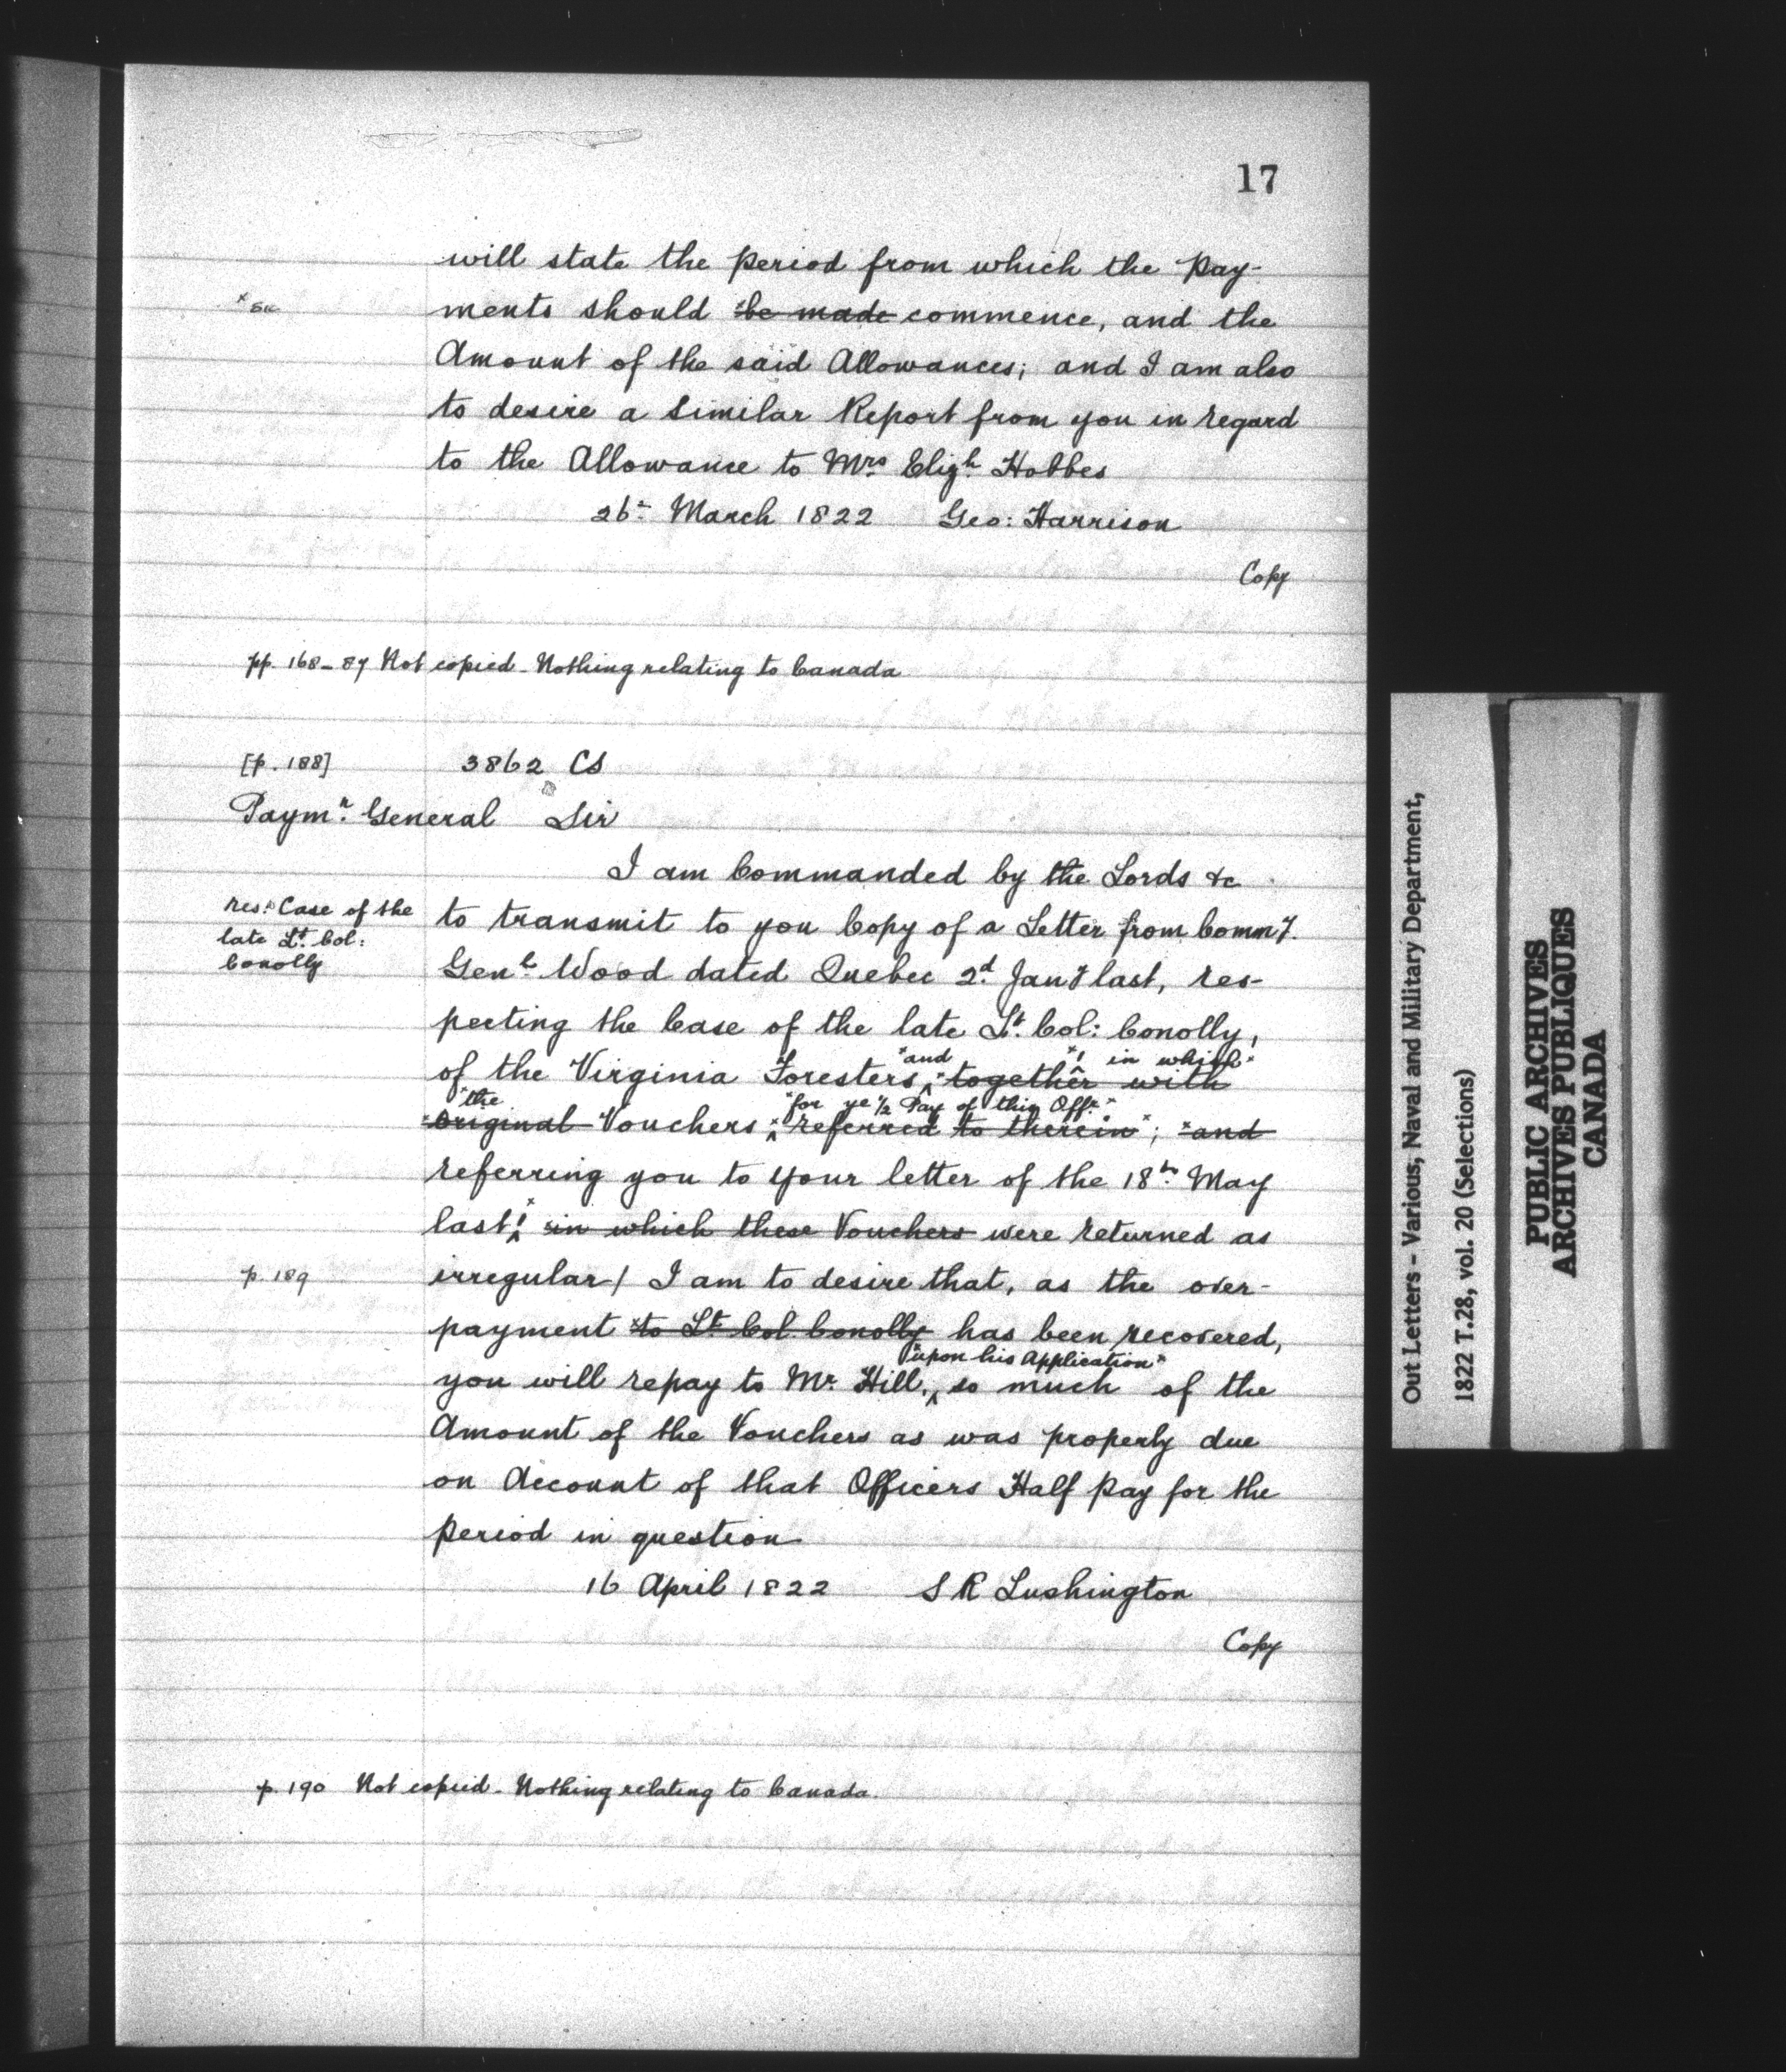 17
will state the period from which the Pay-
x sic
ments should be made commence, and the
Amount of the said Allowances; and I am also
to desire a Similar Report from you in regard
to the Allowance to Mrs Elizh Hobbes
26th March 1822 Geo: Harrison
Copy
pp. 168-87 Not copied - Nothing relating to Canada
[p. 188] 3862 CS
Paymr General Sir
I am Commanded by the Lords &c
resp Case of the
late Lt Col:
Conolly
to transmit to you Copy of a Letter from Commy.
Genl Wood dated Quebec 2d Jany last, res-
pecting the Case of the late Lt. Col: Conolly,
x and x in which x
of the Virginia Foresters, together with
x the x for ye ½ Pay of this Offr x
original Vouchers; referred to therein; and
referring you to your letter of the 18th May
last, in which these Vouchers were returned as
p. 189
irregular/ I am to desire that, as the over-
payment to Lt Col Conolly has been recovered,
x upon his Application x
you will repay to Mr Hill, so much of the
Amount of the Vouchers as was properly due
on Account of that Officers Half Pay for the
Period in question
16 April 1822 S R Lushington
Copy
p. 190 Not copied - Nothing relating to Canada.
Out Letters - Various, Naval and Military Department,
1822 T.28, vol. 20 (Selections)
PUBLIC ARCHIVES
ARCHIVES PUBLIQUES
CANADA